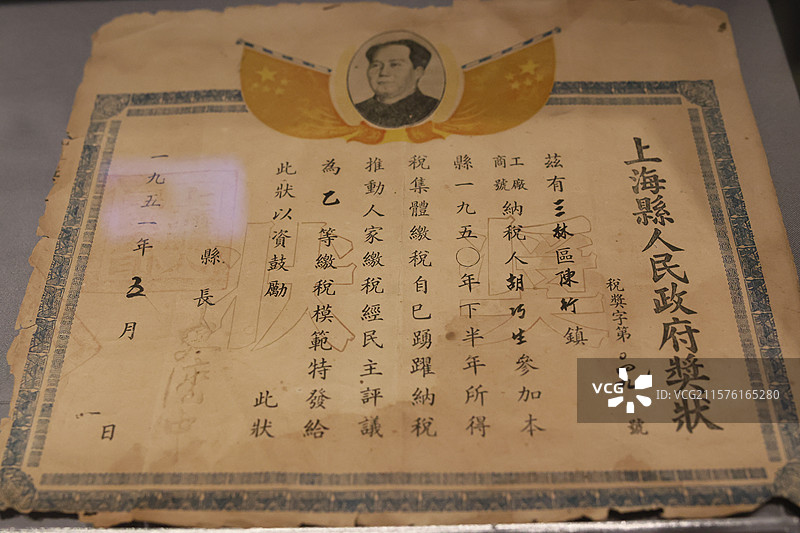 上海縣人民政府獎狀
稅獎字第〇 號
茲有三林區陳行鎮
工廠商號納稅人胡巧生參加本
縣一九五〇年下半年所得
稅集體繳稅自已踴躍納稅
推動人家繳稅經民主評議
為乙等繳稅模範特發給
此狀以資鼓勵 此狀
縣長
一九五一年五月 一日
獎狀
VCG
ID:VCG211576165280